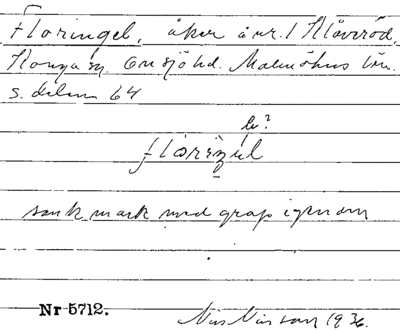 Floringel, åker å nr. 1 Klåveröd,
Konga sn, Onsjö hd. Malmöhus län.
s. delen 64
lv?
flårizęl
sank mark med grop igenom
Nr 5712.
Nils Nilsson 1936.